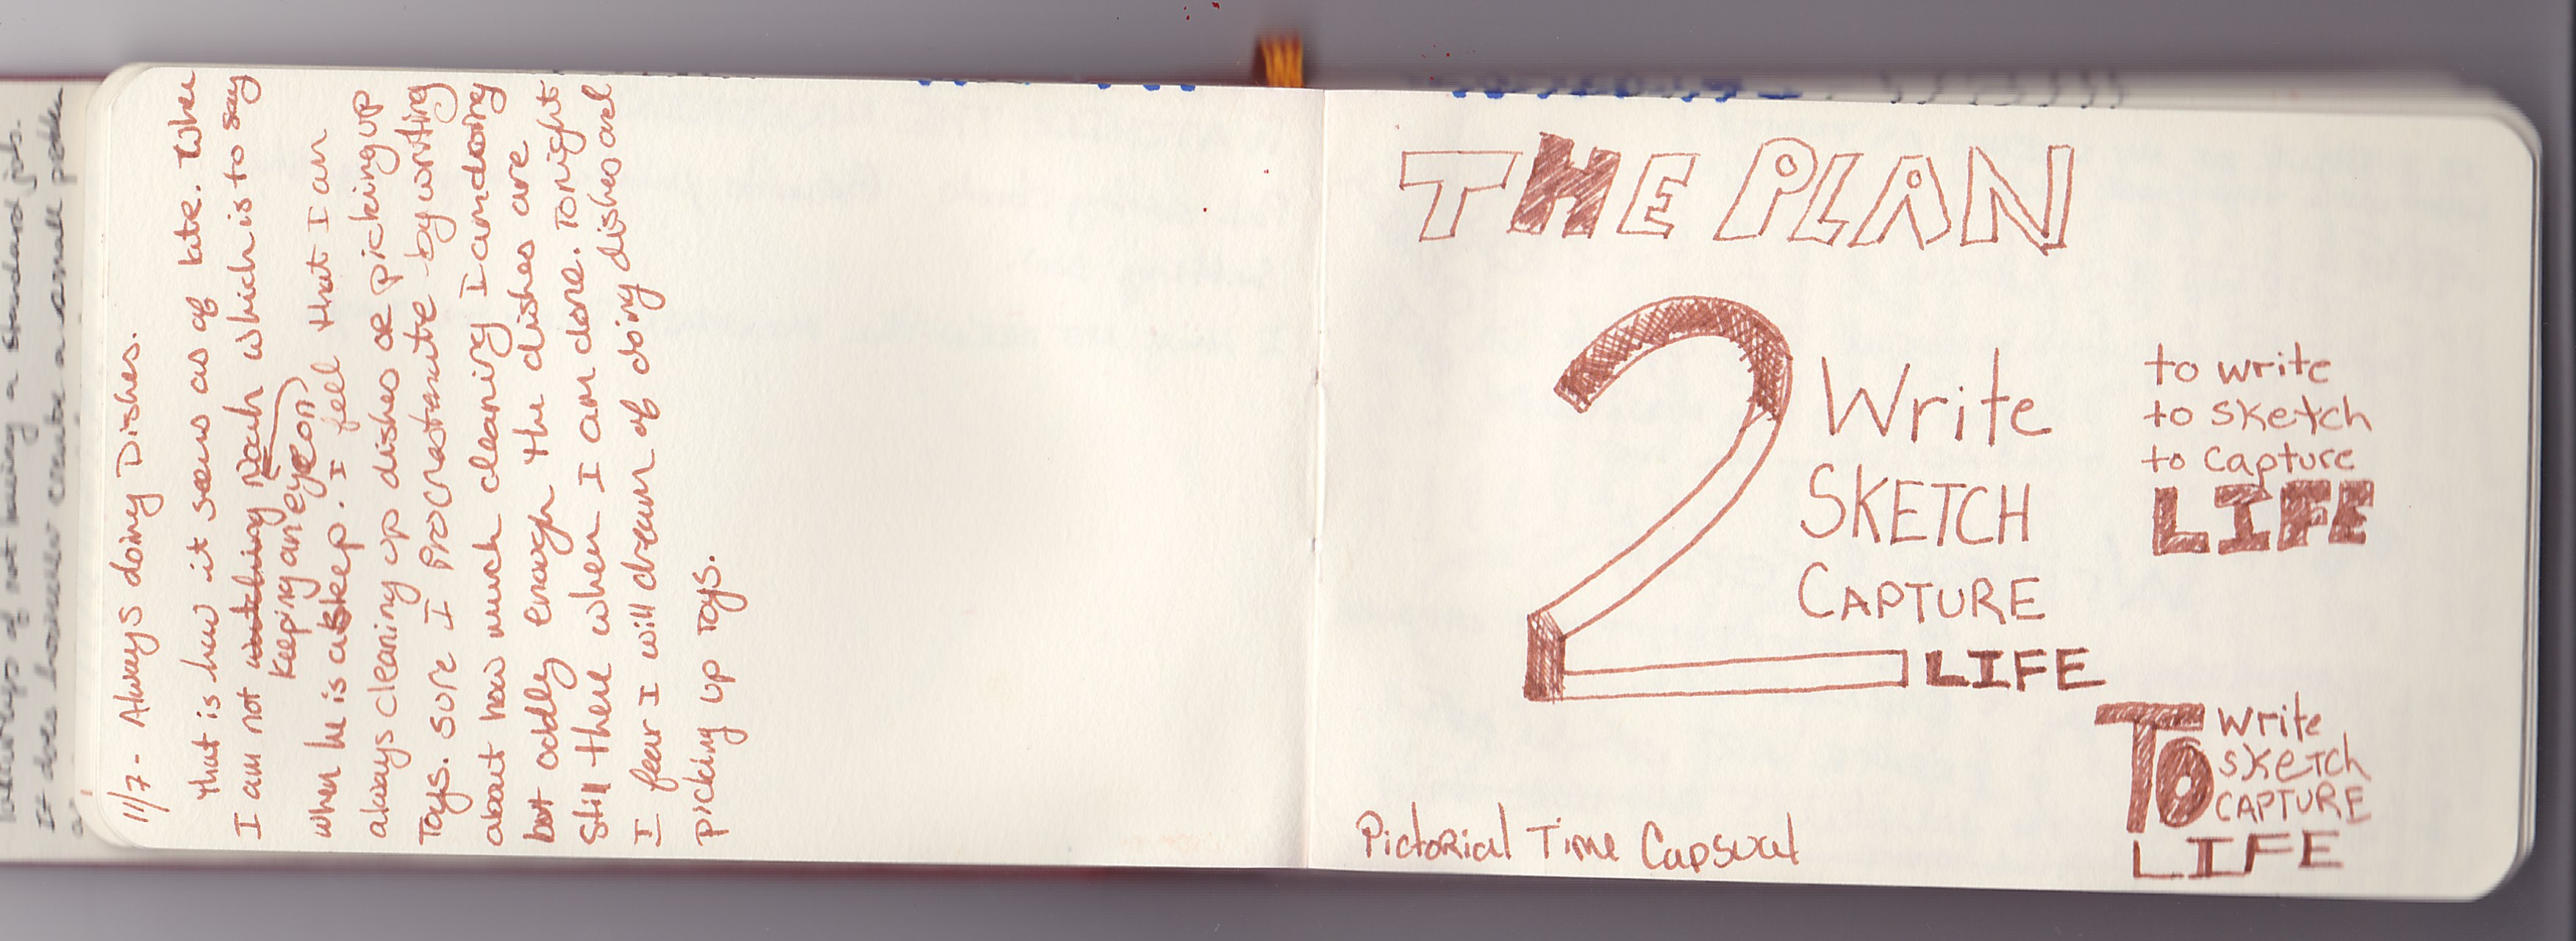 11/7 - Always doing Dishes.
that is how it seems as of late. When
I am not watching Noah which is to say
(keeping an eye on)
when he is asleep. I feel that I am
always cleaning up dishes or picking up
Toys. sure I procrastinate by writing
about how much cleaning I am doing
but oddly enough the dishes are
still there when I am done. Tonight
I fear I will dream of doing dishes and
picking up Toys.
THE PLAN
2
Write
SKETCH
CAPTURE
LIFE
to write
to sketch
to capture
LIFE
TO
write
sketch
CAPTURE
LIFE
Pictorial Time Capsual
of not having a standard job.
It does however create a small